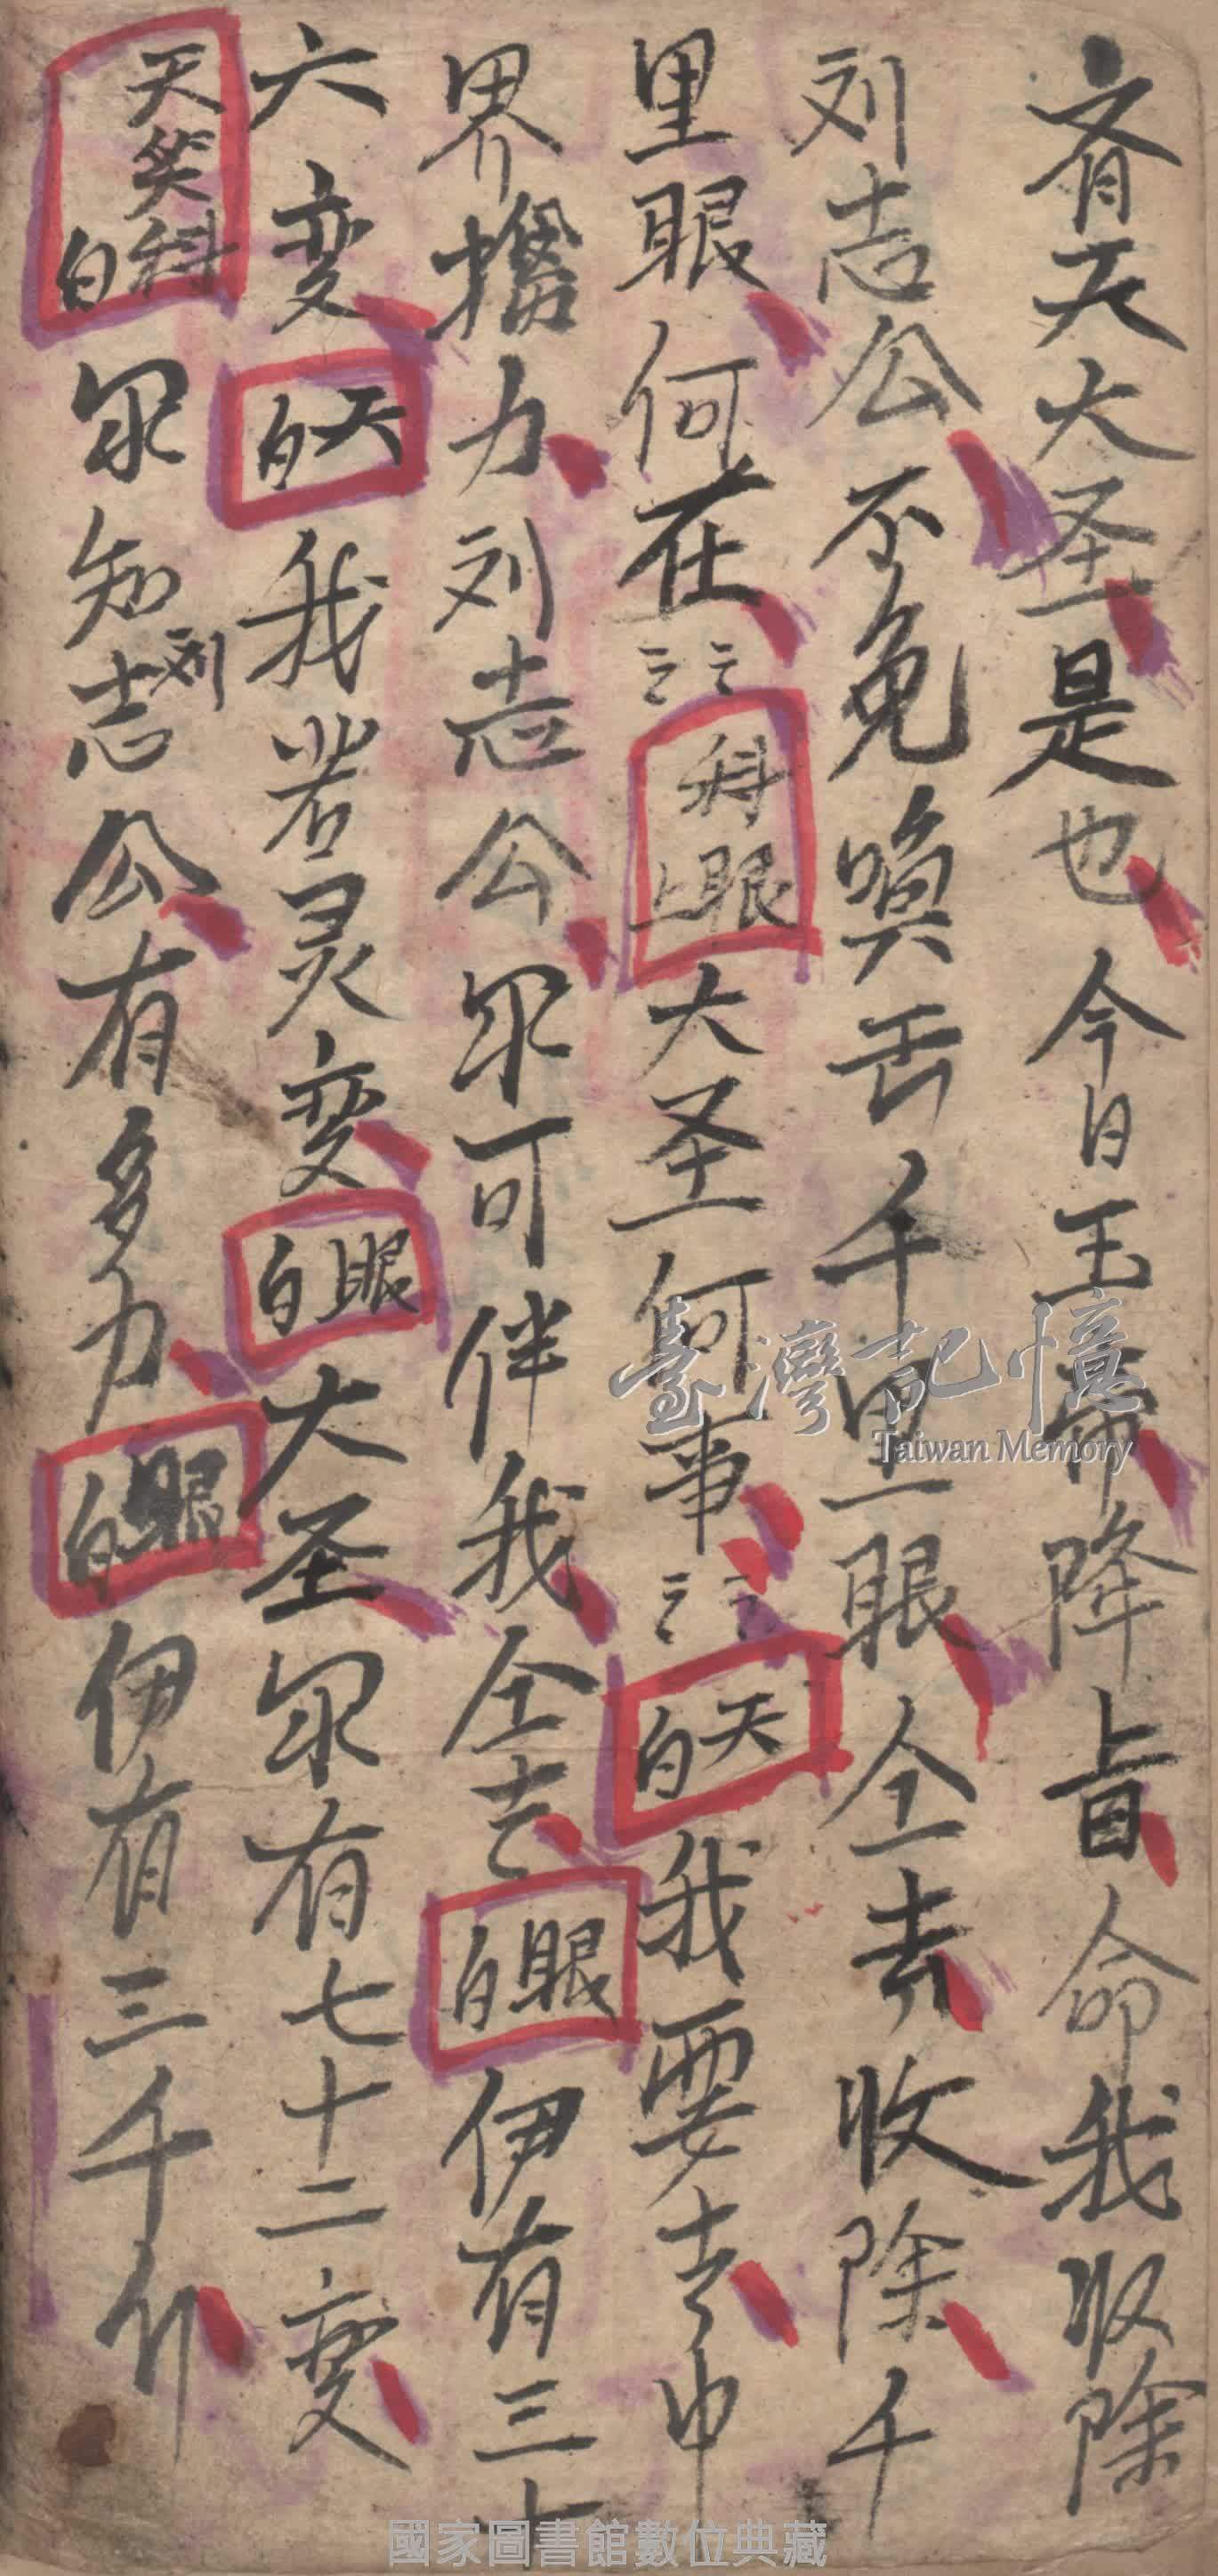 齐天大圣是也今日玉帝降旨命我收除
刘志公不免唤出千里眼仝去收除千
里眼何在云云科眼上大圣何事云云天白我要去中
界擒力刘志公你可伴我仝去眼白伊有三十
六变天白我岩灵变眼白大圣你有七十二变
天笑科白你知刘志公有多力眼白伊有三千斤
臺灣記憶
Taiwan Memory
國家圖書館數位典藏